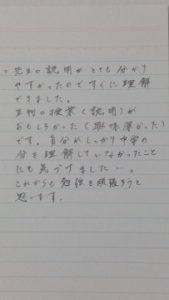 ・先生の説明がとても分かり
やすかったのですぐに理解
できました。
生物の授業(説明)が
おもしろかった(興味深かった)
です。自分がしっかり中学の
分を理解していなかったこと
にも気づけました…。
これからも勉強を頑張ろうと
思います。